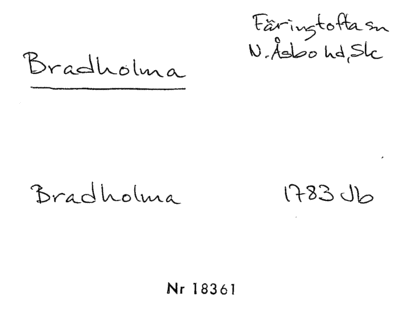 Färingtofta sn
N. Åsbo hd, Sk
Bradholma
Bradholma 1783 Jb
Nr 18361